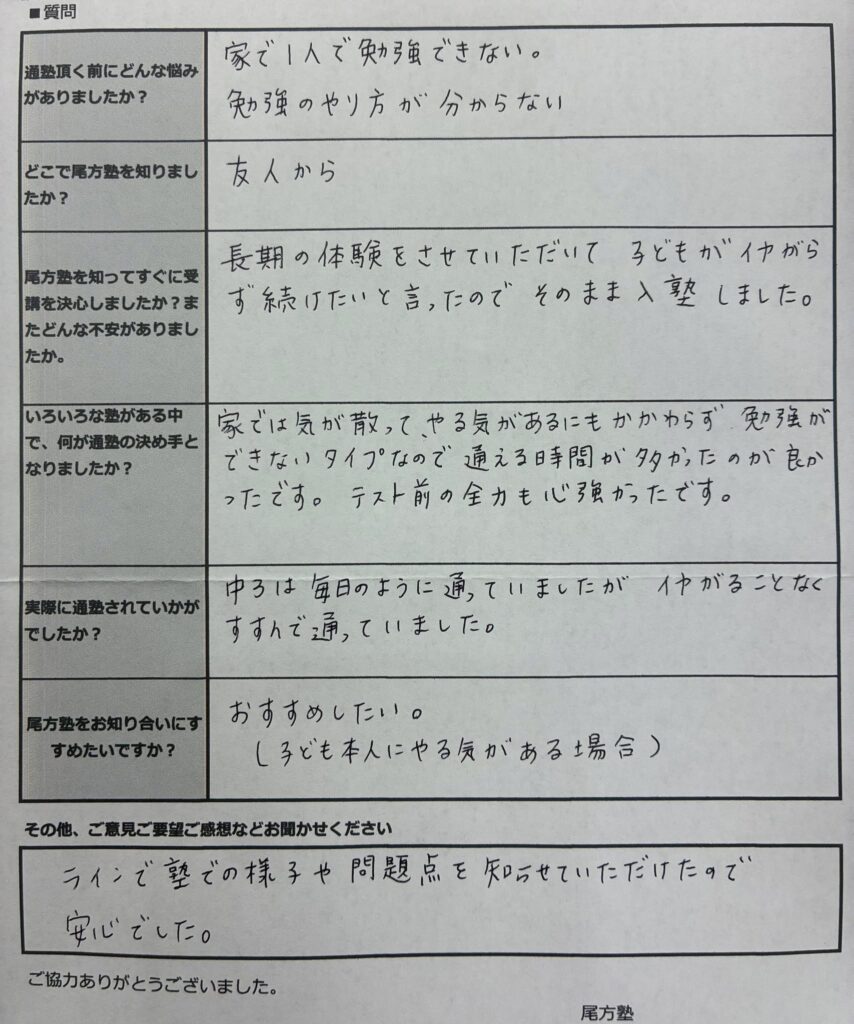 ■質問
通塾頂く前にどんな悩み
がありましたか？
家で1人で勉強できない。
勉強のやり方が分からない
どこで尾方塾を知りまし
たか？
友人から
尾方塾を知ってすぐに受
講を決心しましたか？ま
たどんな不安がありまし
たか。
長期の体験をさせていただいて 子どもがイヤがら
ず続けたいと言ったので そのまま入塾しました。
いろいろな塾がある中
で、何が通塾の決め手と
なりましたか？
家では気が散って、やる気があるにもかかわらず 勉強が
できないタイプなので 通える時間が多かったのが良か
ったです。 テスト前の全力も心強かったです。
実際に通塾されていかが
でしたか？
中3は毎日のように通っていましたが イヤがることなく
すすんで通っていました。
尾方塾をお知り合いにす
すめたいですか？
おすすめしたい。
(子ども本人にやる気がある場合)
その他、ご意見ご要望ご感想などお聞かせください
ラインで塾での様子や問題点を知らせていただけたので
安心でした。
ご協力ありがとうございました。
尾方塾